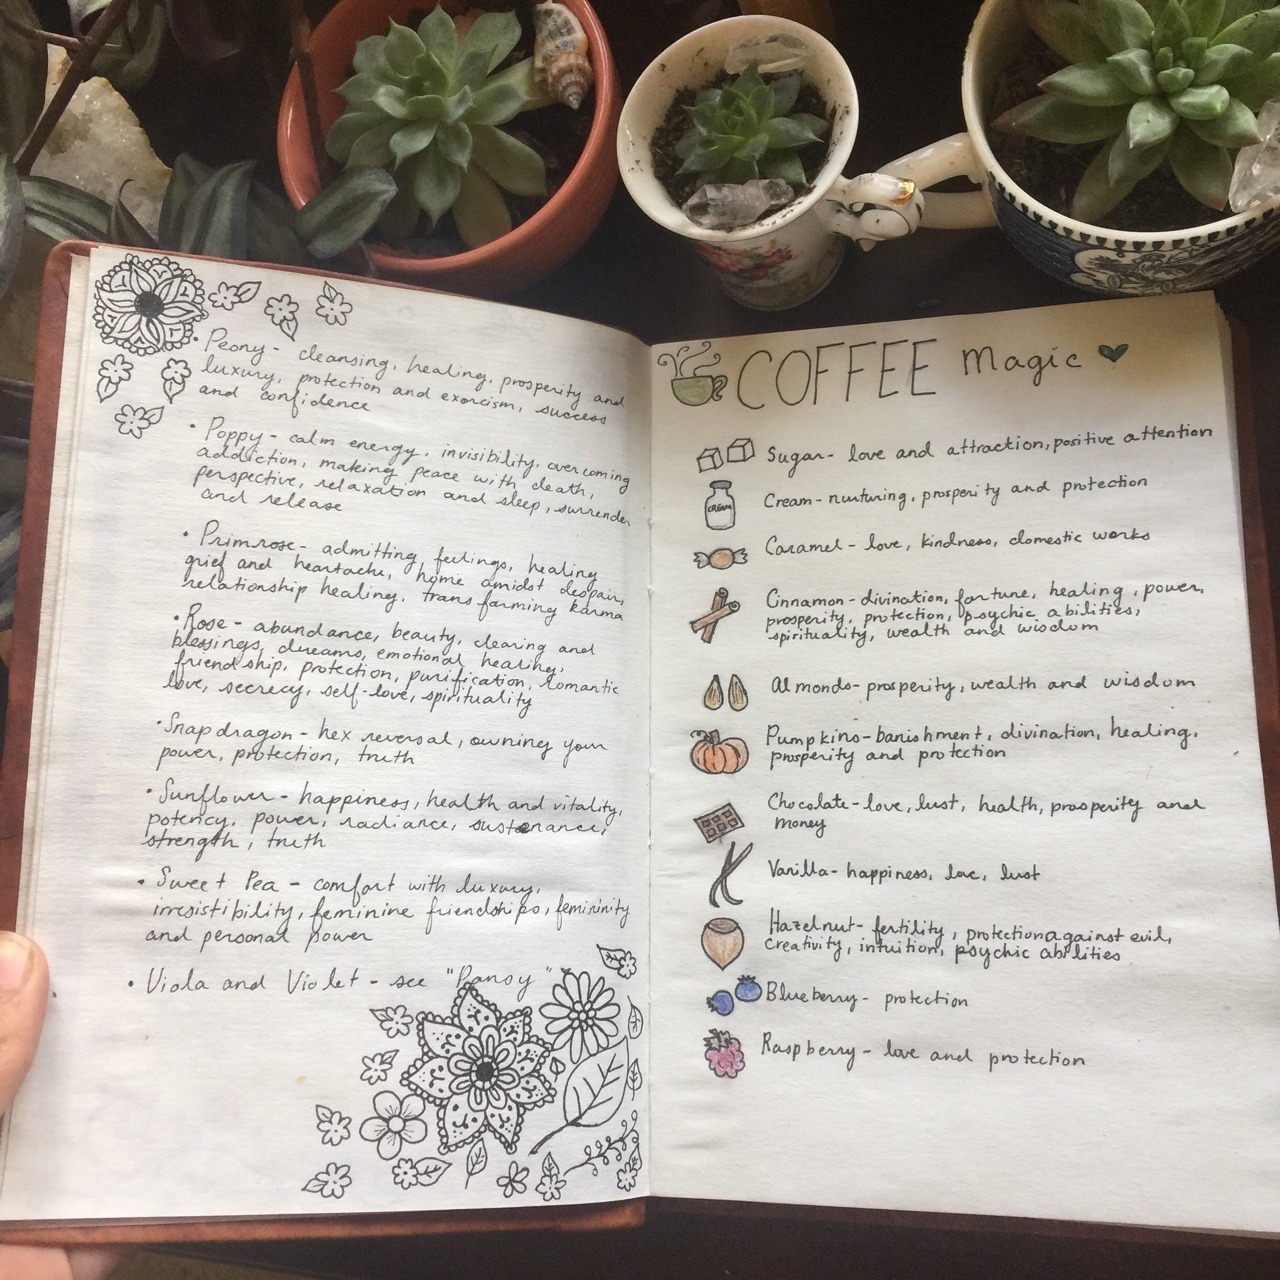 • Peony - cleansing, healing, prosperity and
luxury, protection and exorcism, success
and confidence
• Poppy - calm energy, invisibility, overcoming
addiction, making peace with death,
perspective, relaxation and sleep, surrender
and release
• Primrose - admitting feelings, healing
grief and heartache, home amidst despair,
relationship healing, transforming karma
• Rose - abundance, beauty, clearing and
blessings, dreams, emotional healing,
friendship, protection, purification, romantic
love, secrecy, self-love, spirituality
• Snapdragon - hex reversal, owning your
power, protection, truth
• Sunflower - happiness, health and vitality,
potency, power, radiance, sustenance,
strength, truth
• Sweet Pea - comfort with luxury,
irresistibility, feminine friendships, femininity
and personal power
• Viola and Violet - see "Pansy"
COFFEE Magic
Sugar - love and attraction, positive attention
CREAM
Cream - nurturing, prosperity and protection
Caramel - love, kindness, domestic works
Cinnamon - divination, fortune, healing, power,
prosperity, protection, psychic abilities,
spirituality, wealth and wisdom
Almonds - prosperity, wealth and wisdom
Pumpkins - banishment, divination, healing,
prosperity and protection
Chocolate - love, lust, health, prosperity and
money
Vanilla - happiness, love, lust
Hazelnut - fertility, protection against evil,
creativity, intuition, psychic abilities
Blueberry - protection
Raspberry - love and protection